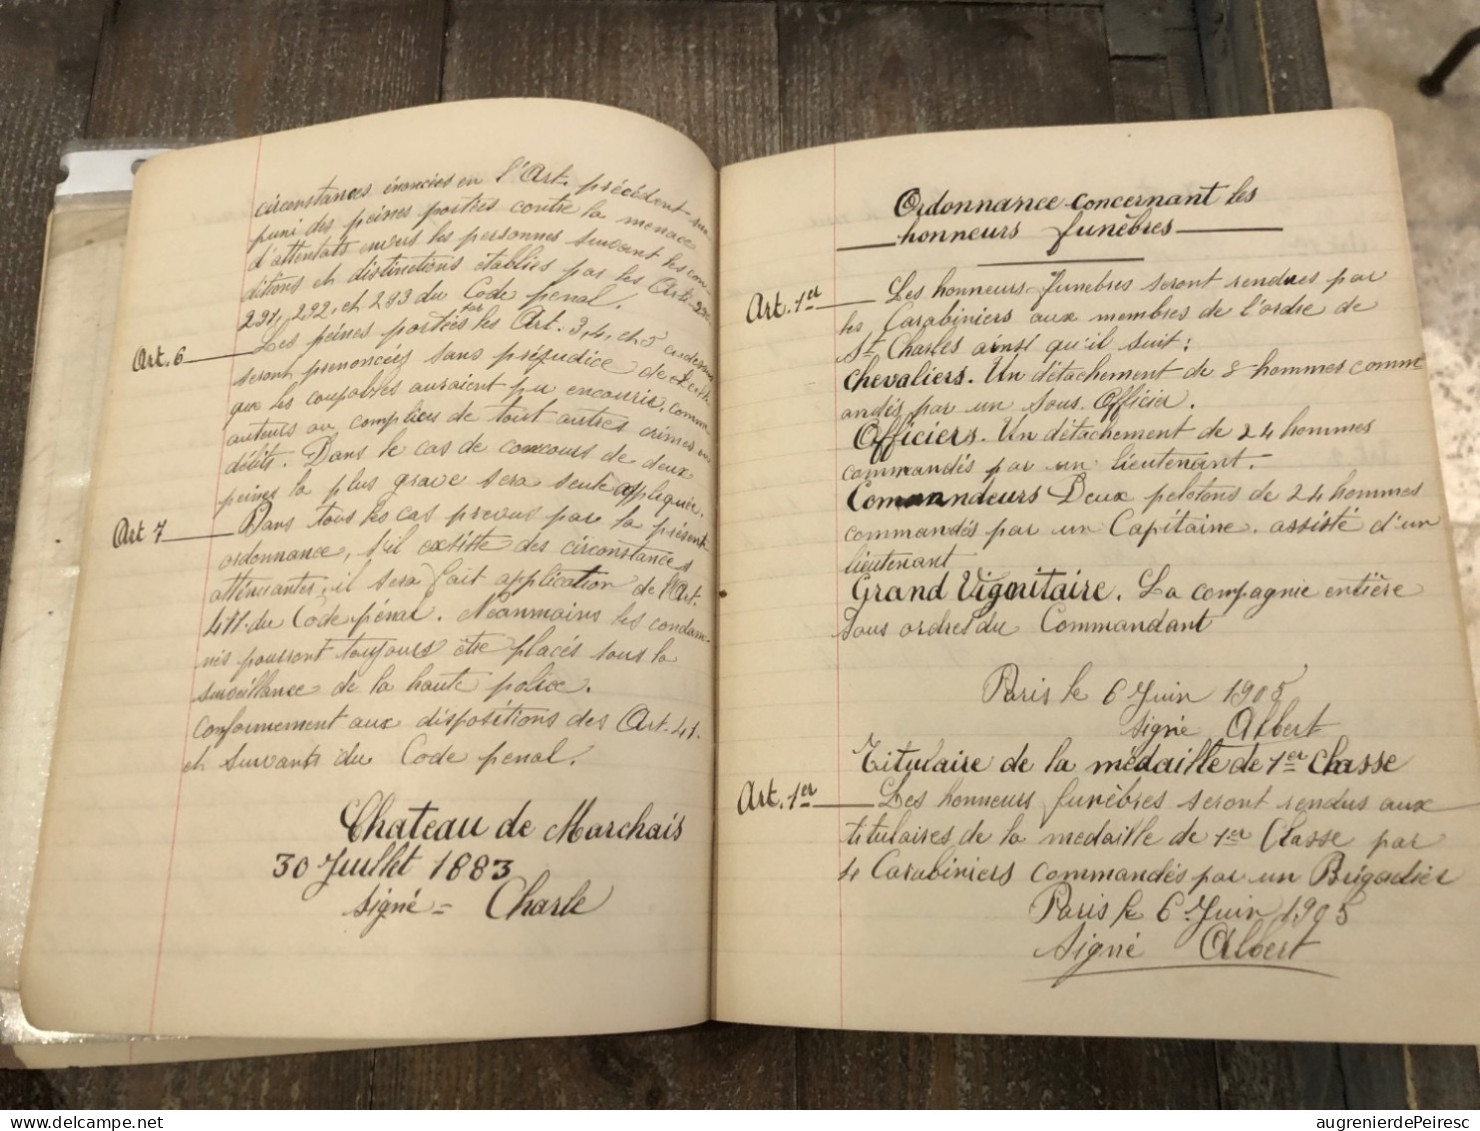 circonstances énoncées en l'Art. précédent sera
puni des peines portées contre la menace
d'attentats envers les personnes suivant les con
ditions et distinctions établies par les Arts 290
291, 292, et 293 du Code penal.
Art. 6 Les peines portées par les Art. 3, 4, et 5 ci dessus
seront prononcées sans préjudice de celles
que les coupables auraient pu encourir, comme
auteurs ou complices de tout autres crimes ou
délits. Dans le cas de concours de deux
peines la plus grave sera seule appliquée.
Art 7 Dans tous les cas prevus par la présent
ordonnance, s'il existe des circonstances
attenuantes, il sera fait application de l'Art.
411. du Code pénal. Néanmoins les condam-
nés pourront toujours être placés sous la
surveillance de la haute police.
conformement aux dispositions des Art. 41.
et suivants du Code penal.
Chateau de Marchais
30 Juillet 1883
signé = Charle
Ordonnance concernant les
honneurs funèbres
Art. 1er Les honneurs funebres seront rendues par
les Carabiniers aux membres de l'ordre de
St Charles ainsi qu'il suit:
Chevaliers. Un détachement de 8 hommes comm
andés par un Sous. Officier.
Officiers. Un détachement de 24 hommes
commandés par un lieutenant.
Commandeurs Deux pelotons de 24 hommes
commandés par un Capitaine. assisté d'un
lieutenant
Grand Dignitaire. La compagnie entière
sous ordres du Commandant
Paris le 6 Juin 1905
signé Albert
Titulaire de la médaille de 1er Classe
Art. 1er Les honneurs funèbres seront rendus aux
titulaires de la medaille de 1er Classe par
4 Carabiniers commandés par un Brigadier
Paris le 6 Juin 1905
Signé Albert
augrenierdePeiresc